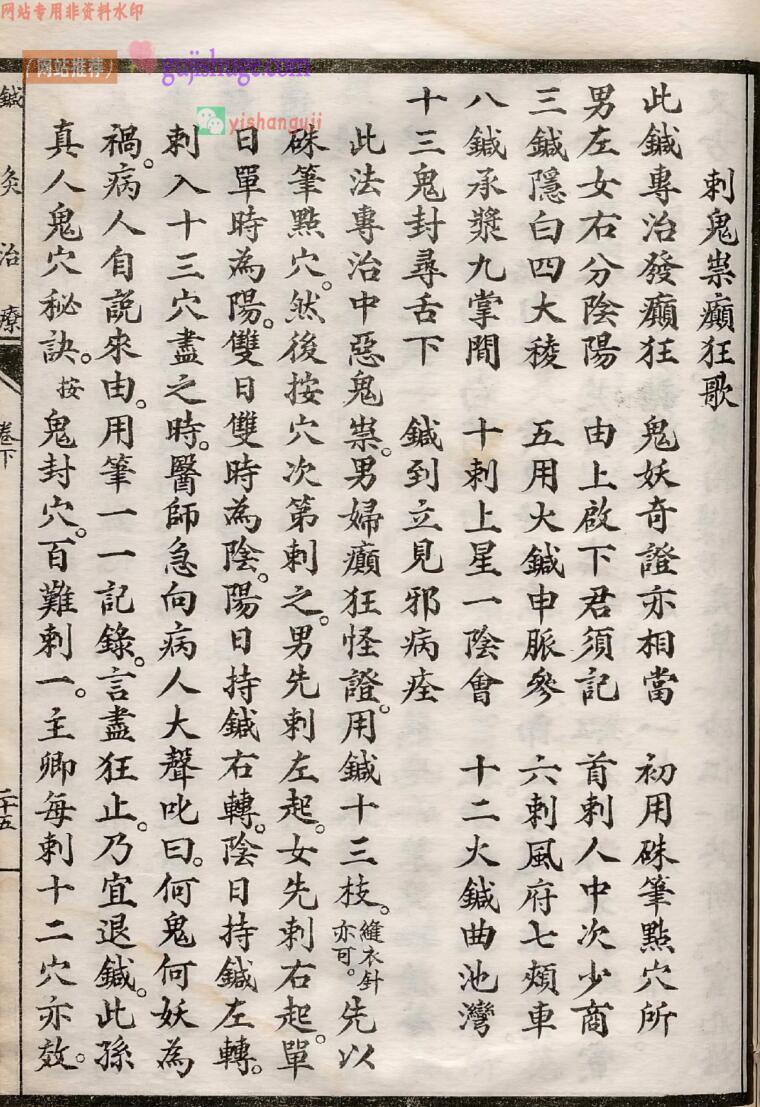 网站专用非资料水印
(网站推荐)
gujishuge.com
yishanguji
刺鬼祟癲狂歌
此鍼專治發癲狂　鬼妖奇證亦相當　初用硃筆點穴所
男左女右分陰陽　由上啟下君須記　首刺人中次少商
三鍼隱白四大稜　五用大鍼申脈參　六刺風府七頰車
八鍼承漿九掌間　十刺上星一陰會　十二火鍼曲池灣
十三鬼封尋舌下　鍼到立見邪病痊
此法專治中惡鬼祟。男婦癲狂怪證。用鍼十三枝。縫衣針亦可。先以
硃筆點穴。然後按穴次第刺之。男先刺左起。女先刺右起。單
日單時為陽。雙日雙時為陰。陽日持鍼右轉。陰日持鍼左轉。
刺入十三穴盡之時。醫師急向病人大聲叱曰。何鬼何妖為
禍。病人自說來由。用筆一一記錄。言盡狂止。乃宜退鍼。此孫
真人鬼穴秘訣。按鬼封穴。百難刺一。主卿每刺十二穴亦效。
鍼灸治療
卷下
二十五